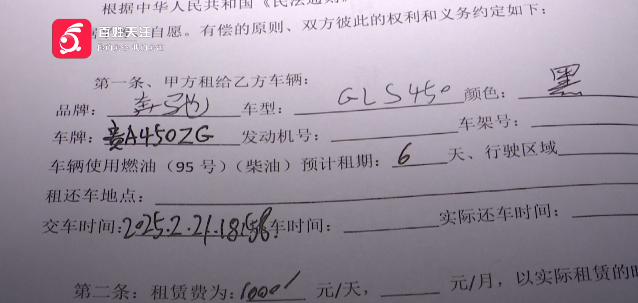 根据中华人民共和国《民法通则》
百姓关注
自愿。有偿的原则、双方彼此的权利和义务约定如下:
第一条、甲方租给乙方车辆:
品牌: 奔驰 车型: GLS450 颜色: 黑
车牌: 贵A450ZG 发动机号: 车架号:
车辆使用燃油(95号)(柴油)预计租期: 6 天、行驶区域
租还车地点:
交车时间: 2025.2.21.18:56 车时间: 实际还车时间:
第二条: 租赁费为: 1000 元/天, 元/月, 以实际租赁的时